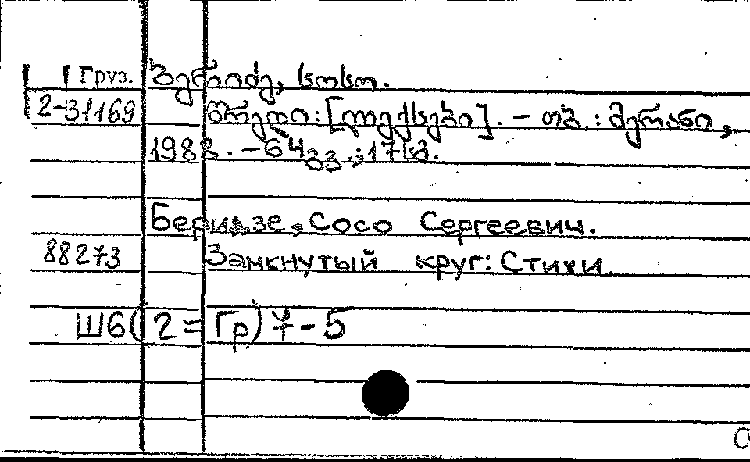 Груз. ბერიძე, სოსო.
2-31169 წრედი: [ლექსები]. - თბ.: მერანი,
1988. - 64 გვ.; 17 სმ.
Беридзе, Сосо Сергеевич.
88273 Замкнутый круг: Стихи
Ш6(2=Гр)7-5